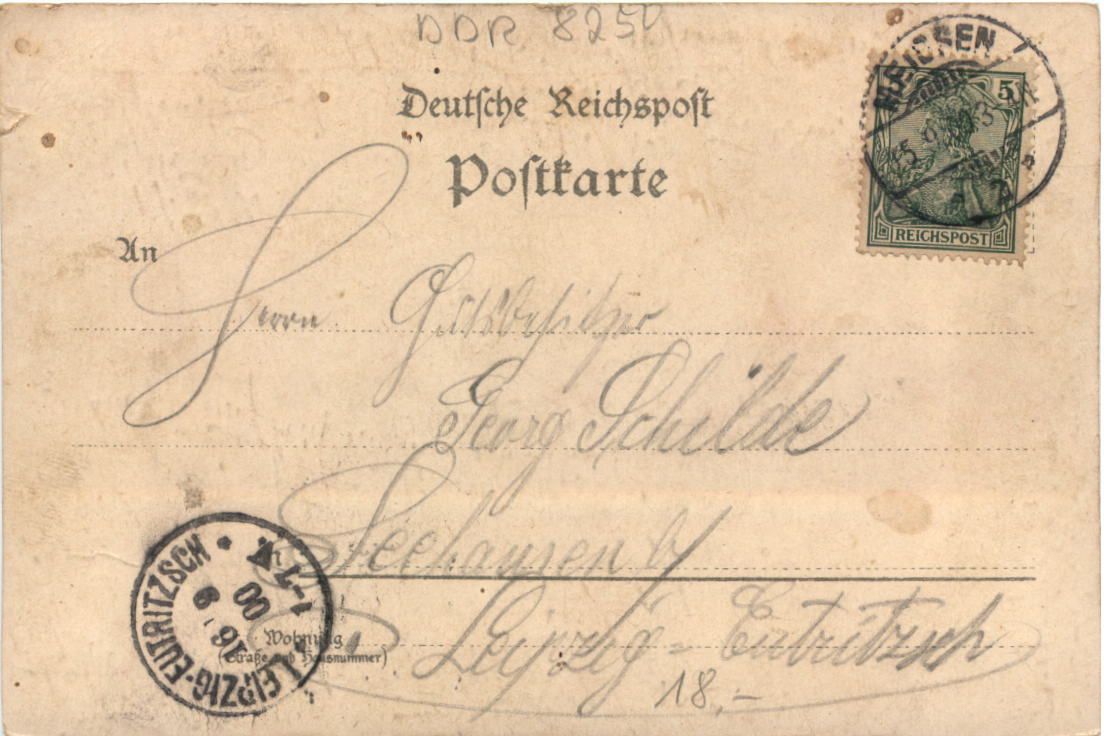 DDR 8250
Deutsche Reichspost
Postkarte
MEISSEN
5
REICHSPOST
An
Herrn Gutsbesitzer
Georg Schilde
Seehausen b/
Leipzig = Eutritzsch
Wohnung
(Straße und Hausnummer)
LEIPZIG-EUTRITZSCH
16 9
00
1-7 V
18,-